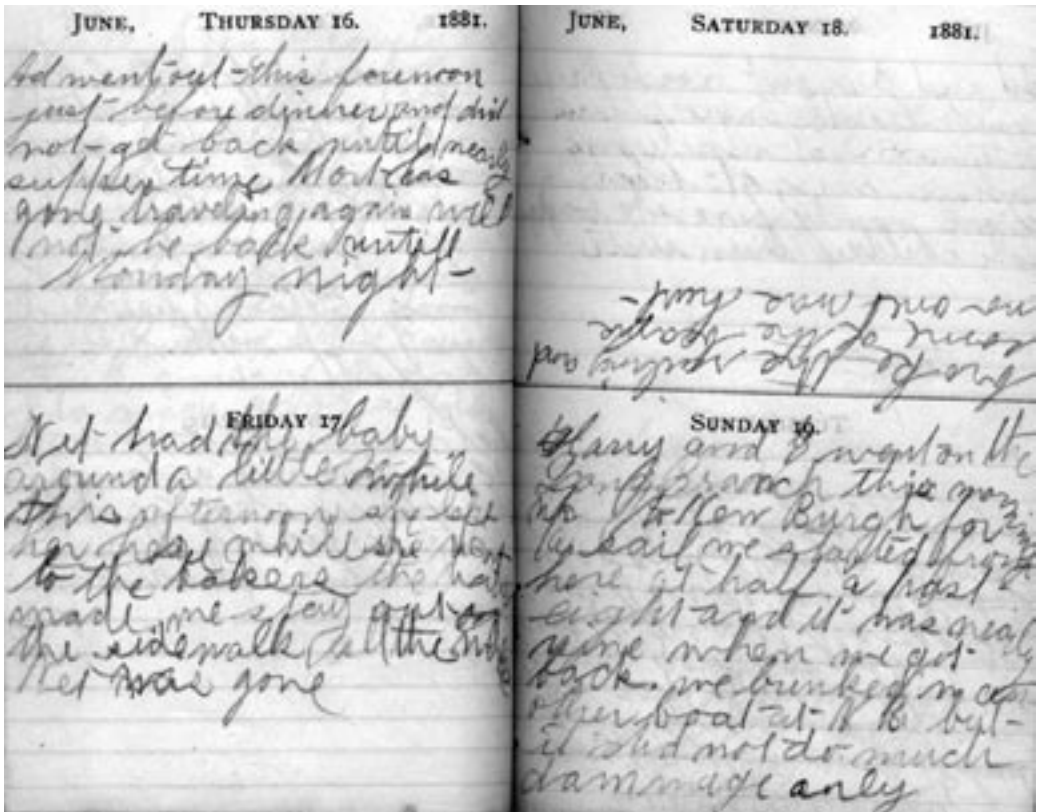 JUNE, THURSDAY 16. 1881.
went out this forenoon
just before dinner and did
not get back until nearly
supper time Mort has
gone traveling again will
not be back untill
Monday night-
FRIDAY 17.
Net had the baby
around a little while
this afternoon she left
her here while she went
to the bakers the baby
made me stay out on
the sidewalk all the while
Net was gone
JUNE, SATURDAY 18. 1881.
SUNDAY 19.
Harry and I went on the
Long Branch this morning
up to New Burgh for
by sail we started from
here at half a past
eight and it was nearly
nine when we got
back. we bunked in
other boat at but-
it did not do much
dammage only
broke the railing and
some of the
one and